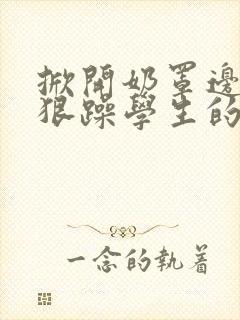 掀開奶罩邊
狠躁學生的
一念的執著